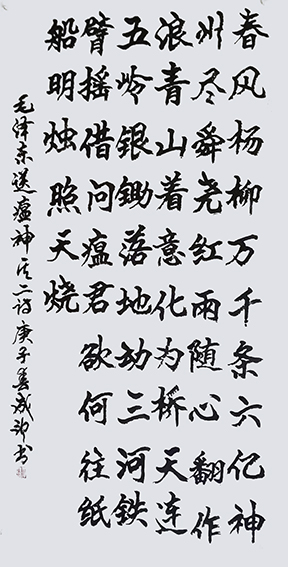 春风杨柳万千条六亿神
州尽舜尧红雨随心翻作
浪青山着意化为桥天连
五岭银锄落地动三河铁
臂摇借问瘟君欲何往纸
船明烛照天烧
毛泽东送瘟神其二诗庚子春成书